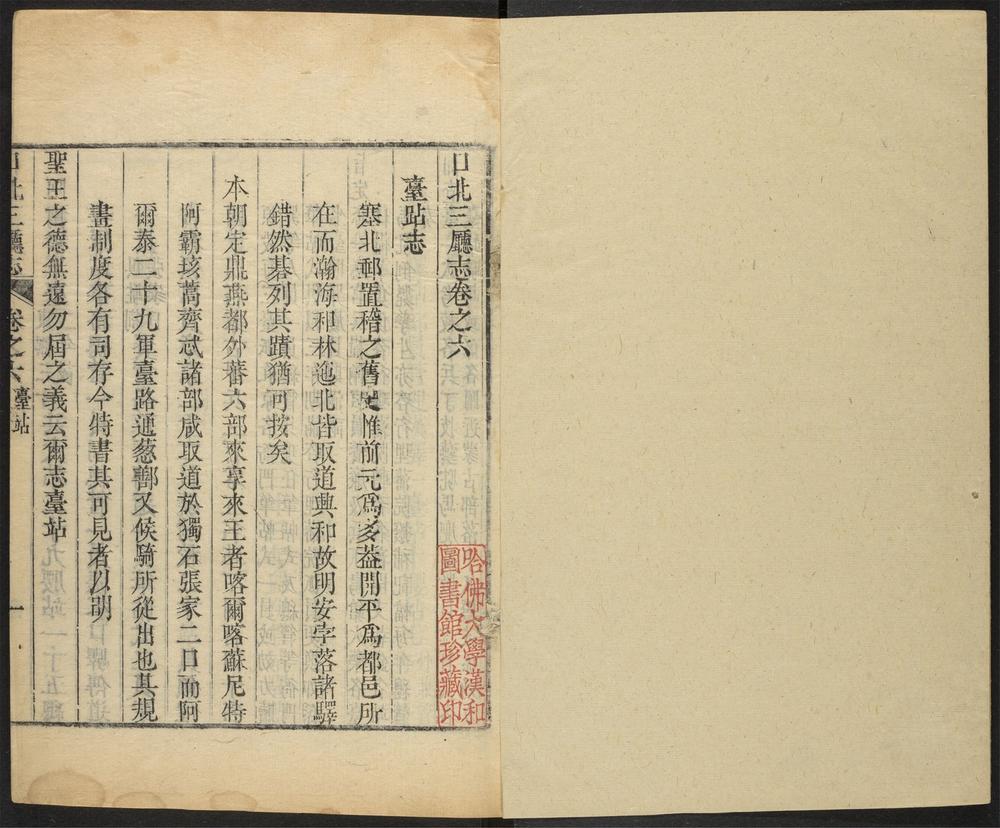 口北三廳志卷之六
臺跕志
塞北郵置稽之舊史惟前元爲多葢開平爲都邑所
在而瀚海和林迤北皆取道興和故明安孛落諸驛
錯然碁列其蹟猶可按矣
本朝定鼎燕都外蕃六部來享來王者喀爾喀蘇尼特
阿霸垓蒿齊忒諸部咸取道於獨石張家二口而阿
爾泰二十九軍臺路通葱鄯又候騎所從出也其規
畫制度各有司存今特書其可見者以明
聖王之德無遠勿屆之義云爾志臺站
口北三廳志
卷之六
臺站
一
哈佛大學漢和
圖書館珍藏印